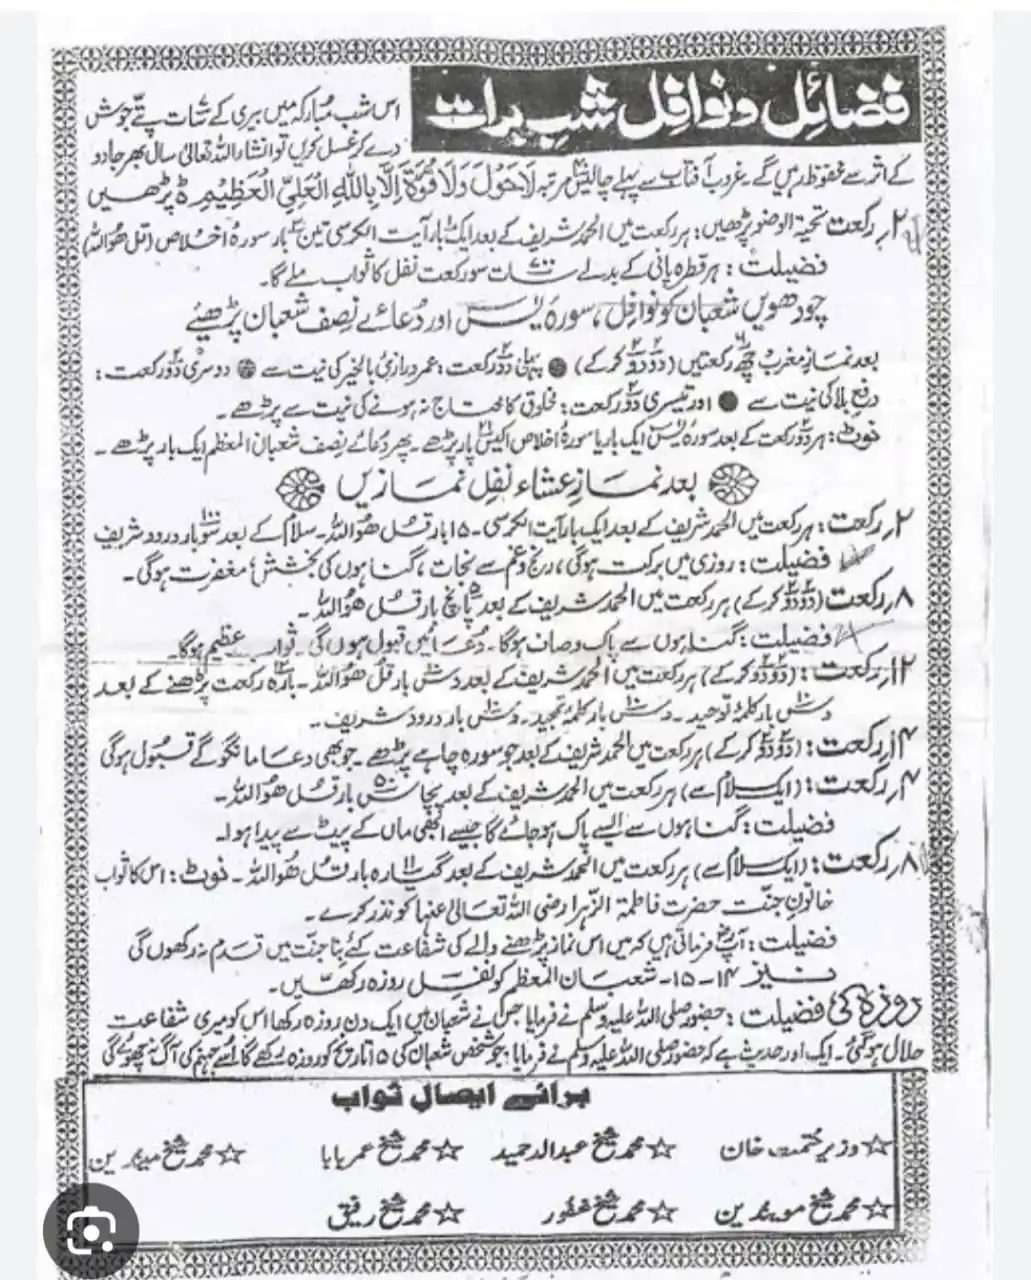 فضائل و نوافل شبِ برات
اس شب مبارکہ میں بیری کے سات پتے جوش
دے کر غسل کریں تو انشاء اللہ تعالیٰ سال بھر جادو
کے اثر سے محفوظ رہیں گے۔ غروب آفتاب سے پہلے چالیس مرتبہ لَا حَوْلَ وَلَا قُوَّةَ اِلَّا بِاللّٰهِ الْعَلِیِّ الْعَظِیْمِ ٥ پڑھیں
۲؍ رکعت تحیۃ الوضو پڑھیں: ہر رکعت میں الحمد شریف کے بعد ایک بار آیت الکرسی تین بار سورۂ اخلاص (قل ھو اللہ)
فضیلت: ہر قطرہ پانی کے بدلے سات ۷۰۰ سو رکعت نفل کا ثواب ملے گا۔
چودھویں شعبان کو نوافل، سورہ یٰسٓ اور دُعائے نصف شعبان پڑھئے
بعد نماز مغرب چھ ۶ رکعتیں (دو ۲ دو ۲ کرکے) ● پہلی دو ۲ رکعت: عمر درازی بالخیر کی نیت سے ● دوسری دو رکعت:
دفع بلا کی نیت سے ● اور تیسری دو رکعت: مخلوق کا محتاج نہ ہونے کی نیت سے پڑھے۔
نوٹ: ہر دو رکعت کے بعد سورہ یٰسٓ ایک بار یا سورۂ اخلاص اکیس ۲۱ بار پڑھے۔ پھر دُعائے نصف شعبان المعظم ایک بار پڑھے۔
بعد نمازِ عشاء نفل نمازیں
۲؍ رکعت: ہر رکعت میں الحمد شریف کے بعد ایک بار آیت الکرسی۔ ۱۵ بار قل ھو اللہ۔ سلام کے بعد سو ۱۰۰ بار درود شریف
فضیلت: روزی میں برکت ہوگی، رنج و غم سے نجات، گناہوں کی بخشش و مغفرت ہوگی۔
۸؍ رکعت (دو دو کرکے) ہر رکعت میں الحمد شریف کے بعد پانچ ۵ بار قل ھو اللہ۔
فضیلت: گناہوں سے پاک و صاف ہوگا۔ دُعائیں قبول ہوں گی۔ ثواب عظیم ہوگا۔
۱۲؍ رکعت: (دو دو کرکے) ہر رکعت میں الحمد شریف کے بعد دس ۱۰ بار قل ھو اللہ۔ بارہ ۱۲ رکعت پڑھنے کے بعد
دس ۱۰ بار کلمۂ توحید۔ دس ۱۰ بار کلمۂ تمجید۔ دس ۱۰ بار درود شریف۔
۱۴؍ رکعت: (دو دو کرکے) ہر رکعت میں الحمد شریف کے بعد جو سورہ چاہے پڑھے۔ جو بھی دعا مانگو گے قبول ہوگی
۴؍ رکعت: (ایک سلام سے) ہر رکعت میں الحمد شریف کے بعد پچاس ۵۰ بار قل ھو اللہ۔
فضیلت: گناہوں سے ایسے پاک ہوجائے گا جیسے ابھی ماں کے پیٹ سے پیدا ہوا۔
۸؍ رکعت: (ایک سلام سے) ہر رکعت میں الحمد شریف کے بعد گیارہ ۱۱ بار قل ھو اللہ۔ نوٹ: اس کا ثواب
خاتونِ جنت حضرت فاطمۃ الزہرا رضی اللہ تعالیٰ عنہا کو نذر کرے۔
فضیلت: آپؓ فرماتی ہیں کہ میں اس نماز پڑھنے والے کی شفاعت کئے بنا جنت میں قدم نہ رکھوں گی
نیز ۱۴۔۱۵۔ شعبان المعظم کو نفل روزہ رکھیں۔
روزہ کی فضیلت: حضور صلی اللہ علیہ وسلم نے فرمایا جس نے شعبان میں ایک دن روزہ رکھا اس کو میری شفاعت
حلال ہوگئی۔ ایک اور حدیث ہے کہ حضور صلی اللہ علیہ وسلم نے فرمایا: جو شخص شعبان کی ۱۵ تاریخ کو روزہ رکھے گا اُسے جہنم کی آگ نہ چھوئے گی
برائے ایصالِ ثواب
☆ وزیر حُمت خان ☆ محمد شیخ عبدالحمید ☆ محمد شیخ عمر بابا ☆ محمد شیخ
☆ محمد شیخ ☆ محمد شیخ غفور ☆ محمد شیخ رفیق